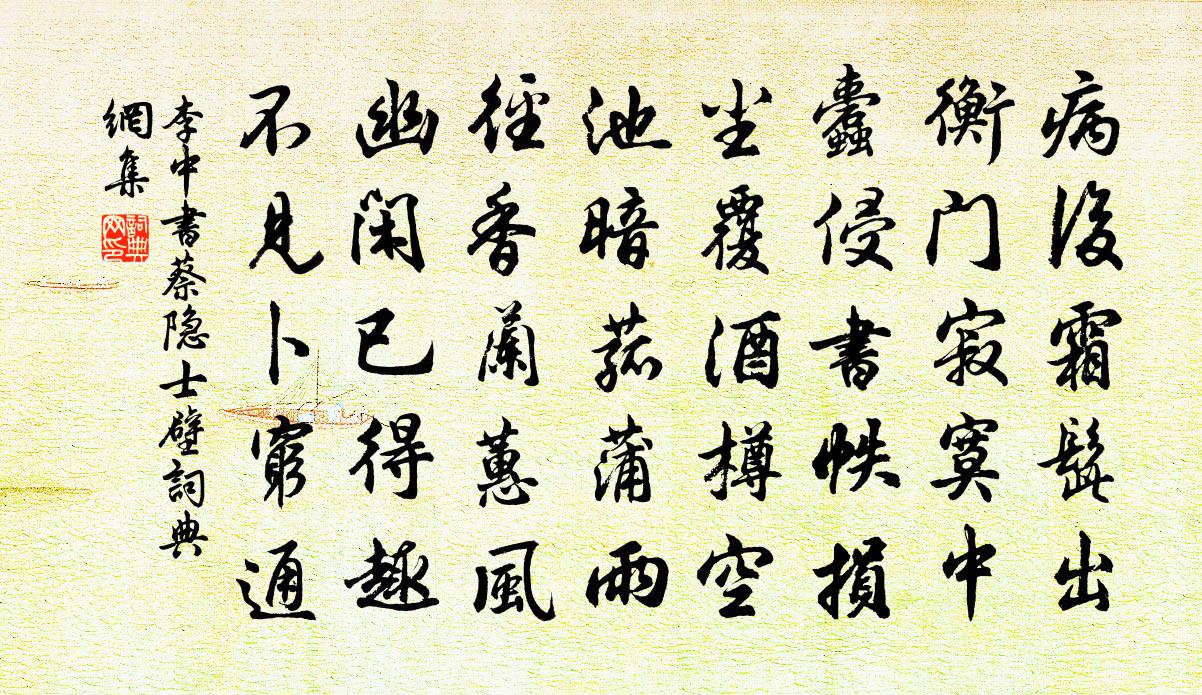 病後霜髭出
衡门寂寞中
蠹侵書帙損
尘覆酒樽空
池暗菰蒲雨
徑香蘭蕙風
幽闲已得趣
不見卜窮通
李中書蔡隐士壁詞典
網集
詞典
网印